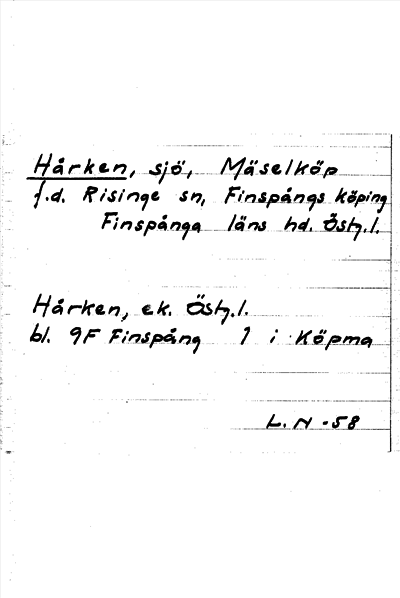 Hårken, sjö, Mäselköp
f.d. Risinge sn, Finspångs köping
Finspånga läns hd. Östg.l.
Hårken, ek. Östg.l.
bl. 9F Finspång 1 i Köpma
L.N -58